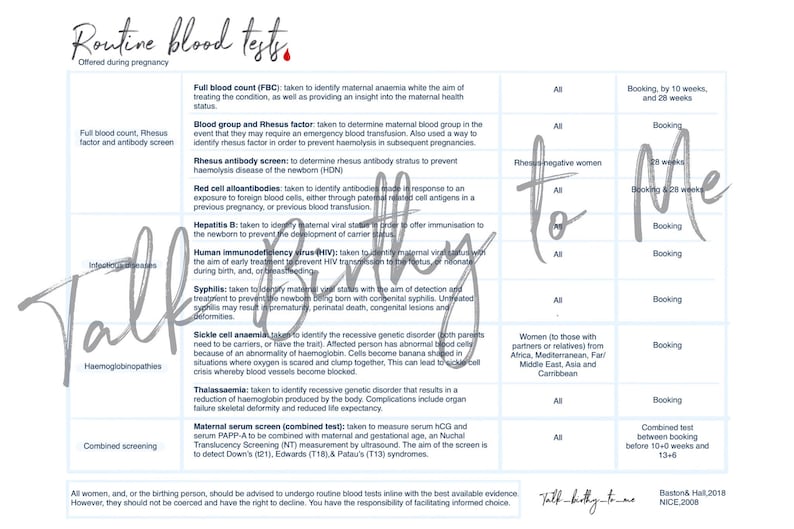 Routine blood tests
Offered during pregnancy
Full blood count, Rhesus
factor and antibody screen
Full blood count (FBC): taken to identify maternal anaemia white the aim of
treating the condition, as well as providing an insight into the maternal health
status.
All
Booking, by 10 weeks,
and 28 weeks
Blood group and Rhesus factor: taken to determine maternal blood group in the
event that they may require an emergency blood transfusion. Also used a way to
identify rhesus factor in order to prevent haemolysis in subsequent pregnancies.
All
Booking
Rhesus antibody screen: to determine rhesus antibody stratus to prevent
haemolysis disease of the newborn (HDN)
Rhesus-negative women
28 weeks
Red cell alloantibodies: taken to identify antibodies made in response to an
exposure to foreign blood cells, either through paternal related cell antigens in a
previous pregnancy, or previous blood transfusion.
All
Booking & 28 weeks
Infectious diseases
Hepatitis B: taken to identify maternal viral status in order to offer immunisation to
the newborn to prevent the development of carrier status.
All
Booking
Human immunodeficiency virus (HIV): taken to identify maternal viral status with
the aim of early treatment to prevent HIV transmission to the foetus, or neonate
during birth, and, or breastfeeding.
All
Booking
Syphilis: taken to identify maternal viral status with the aim of detection and
treatment to prevent the newborn being born with congenital syphilis. Untreated
syphilis may result in prematurity, perinatal death, congenital lesions and
deformities.
All
Booking
Haemoglobinopathies
Sickle cell anaemia: taken to identify the recessive genetic disorder (both parents
need to be carriers, or have the trait). Affected person has abnormal blood cells
because of an abnormality of haemoglobin. Cells become banana shaped in
situations where oxygen is scared and clump together, This can lead to sickle cell
crisis whereby blood vessels become blocked.
Women (to those with
partners or relatives) from
Africa, Mediterranean, Far/
Middle East, Asia and
Carribbean
Booking
Thalassaemia: taken to identify recessive genetic disorder that results in a
reduction of haemoglobin produced by the body. Complications include organ
failure skeletal deformity and reduced life expectancy.
All
Booking
Combined screening
Maternal serum screen (combined test): taken to measure serum hCG and
serum PAPP-A to be combined with maternal and gestational age, an Nuchal
Translucency Screening (NT) measurement by ultrasound. The aim of the screen is
to detect Down's (t21), Edwards (T18),& Patau's (T13) syndromes.
All
Combined test
between booking
before 10+0 weeks and
13+6
Talk Birthy to Me
All women, and, or the birthing person, should be advised to undergo routine blood tests inline with the best available evidence.
However, they should not be coerced and have the right to decline. You have the responsibility of facilitating informed choice.
Talk_birthy_to_me
Baston& Hall,2018
NICE,2008